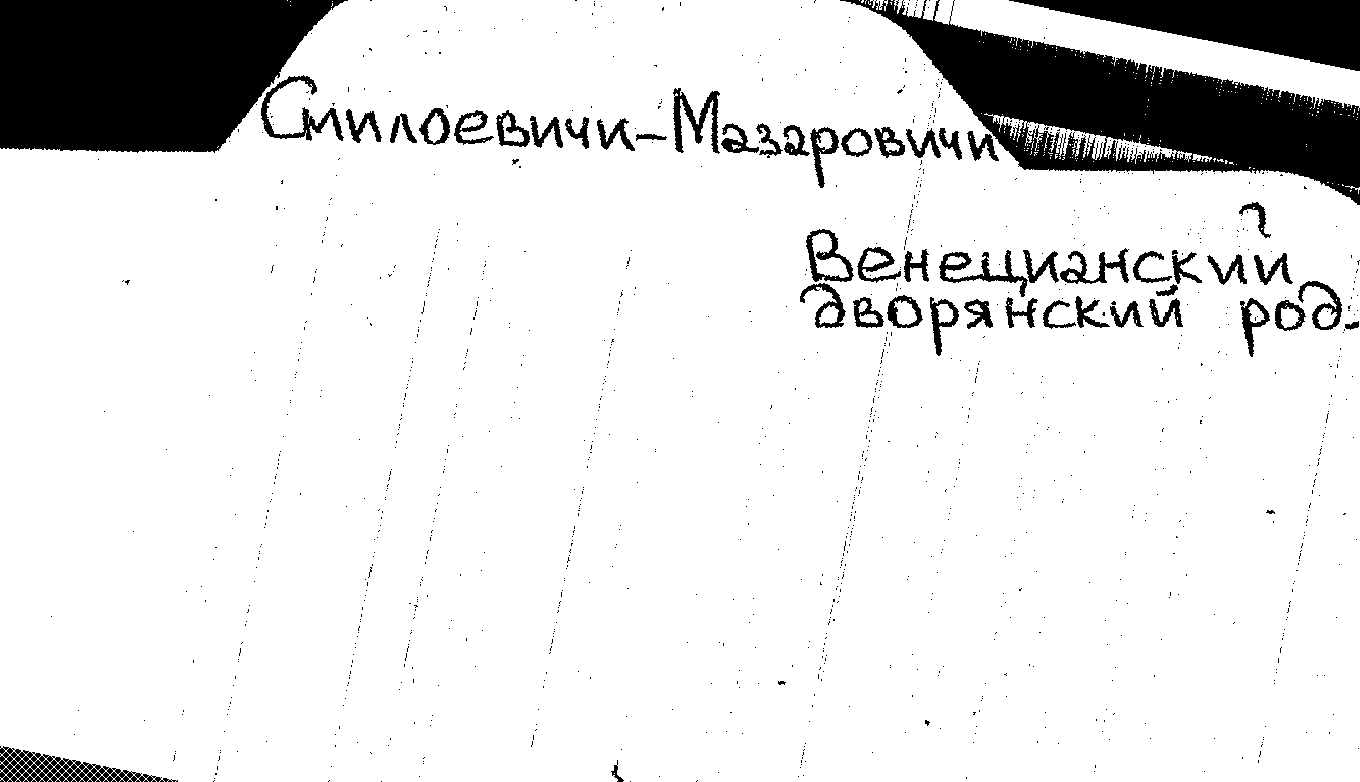 Смилоевичи-Мазаровичи
Венецианский
дворянский род.